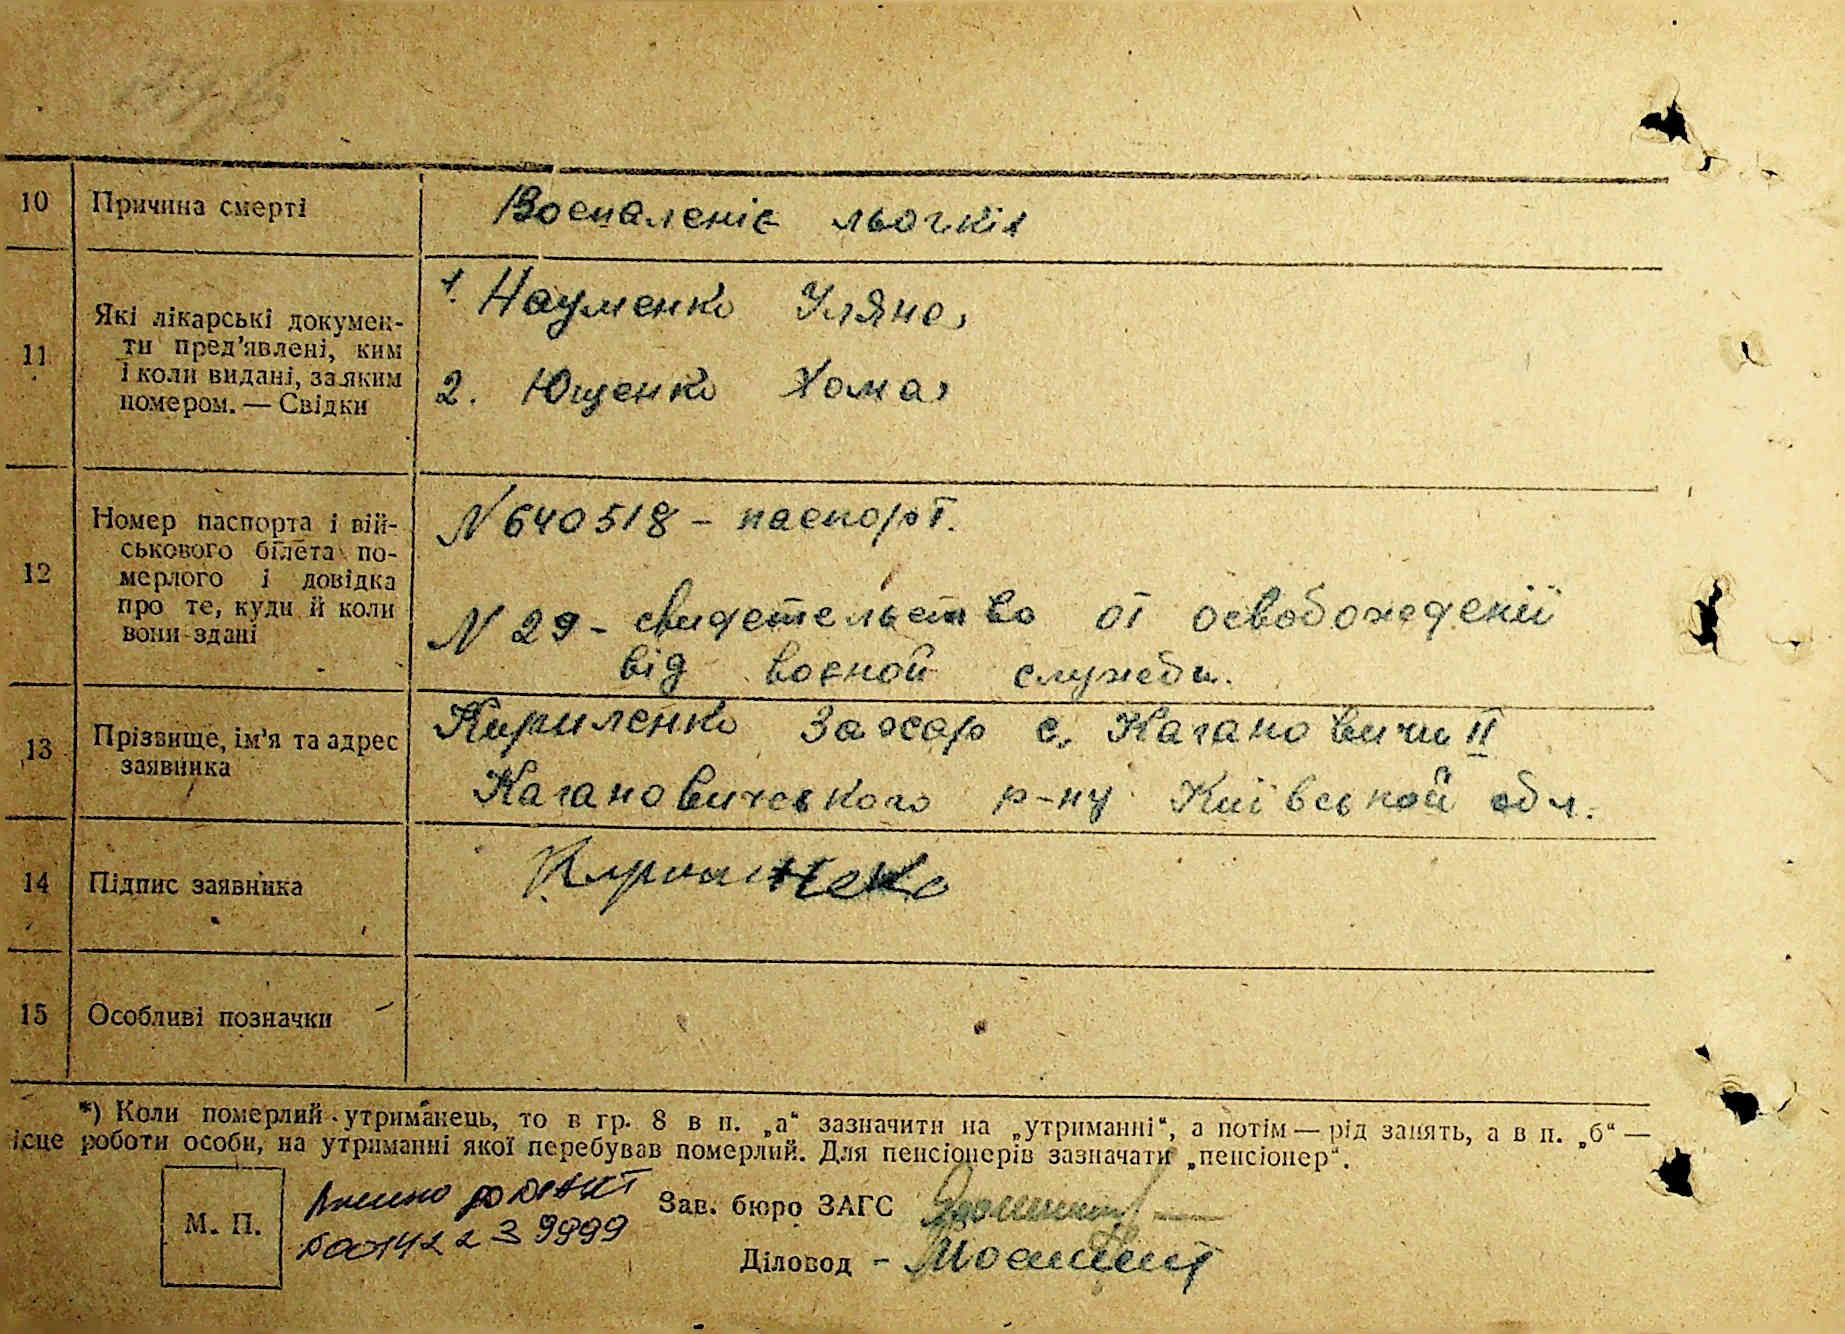 10 Причина смерті Воспаленіє льогкіх
11 Які лікарські докумен-
ти пред'явлені, ким
і коли видані, за яким
номером. — Свідки
1. Науменко Уляна,
2. Ющенко Хома,
12 Номер паспорта і вій-
ськового білета по-
мерлого і довідка
про те, куди й коли
вони здані
N 640518 - паспорт.
N 29 - свидетельство от освобожденії
від воєной служеби.
13 Прізвище, ім'я та адрес
заявника
Кириленко Захар с. Кагановичи II
Кагановичського р-ну Київської обл.
14 Підпис заявника
15 Особливі позначки
*) Коли померлий утриманець, то в гр. 8 в п. „а“ зазначити на „утриманні“, а потім — рід занять, а в п. „б“ —
ісце роботи особи, на утриманні якої перебував померлий. Для пенсіонерів зазначати „пенсіонер“.
М. П.
Зав. бюро ЗАГС
Діловод -